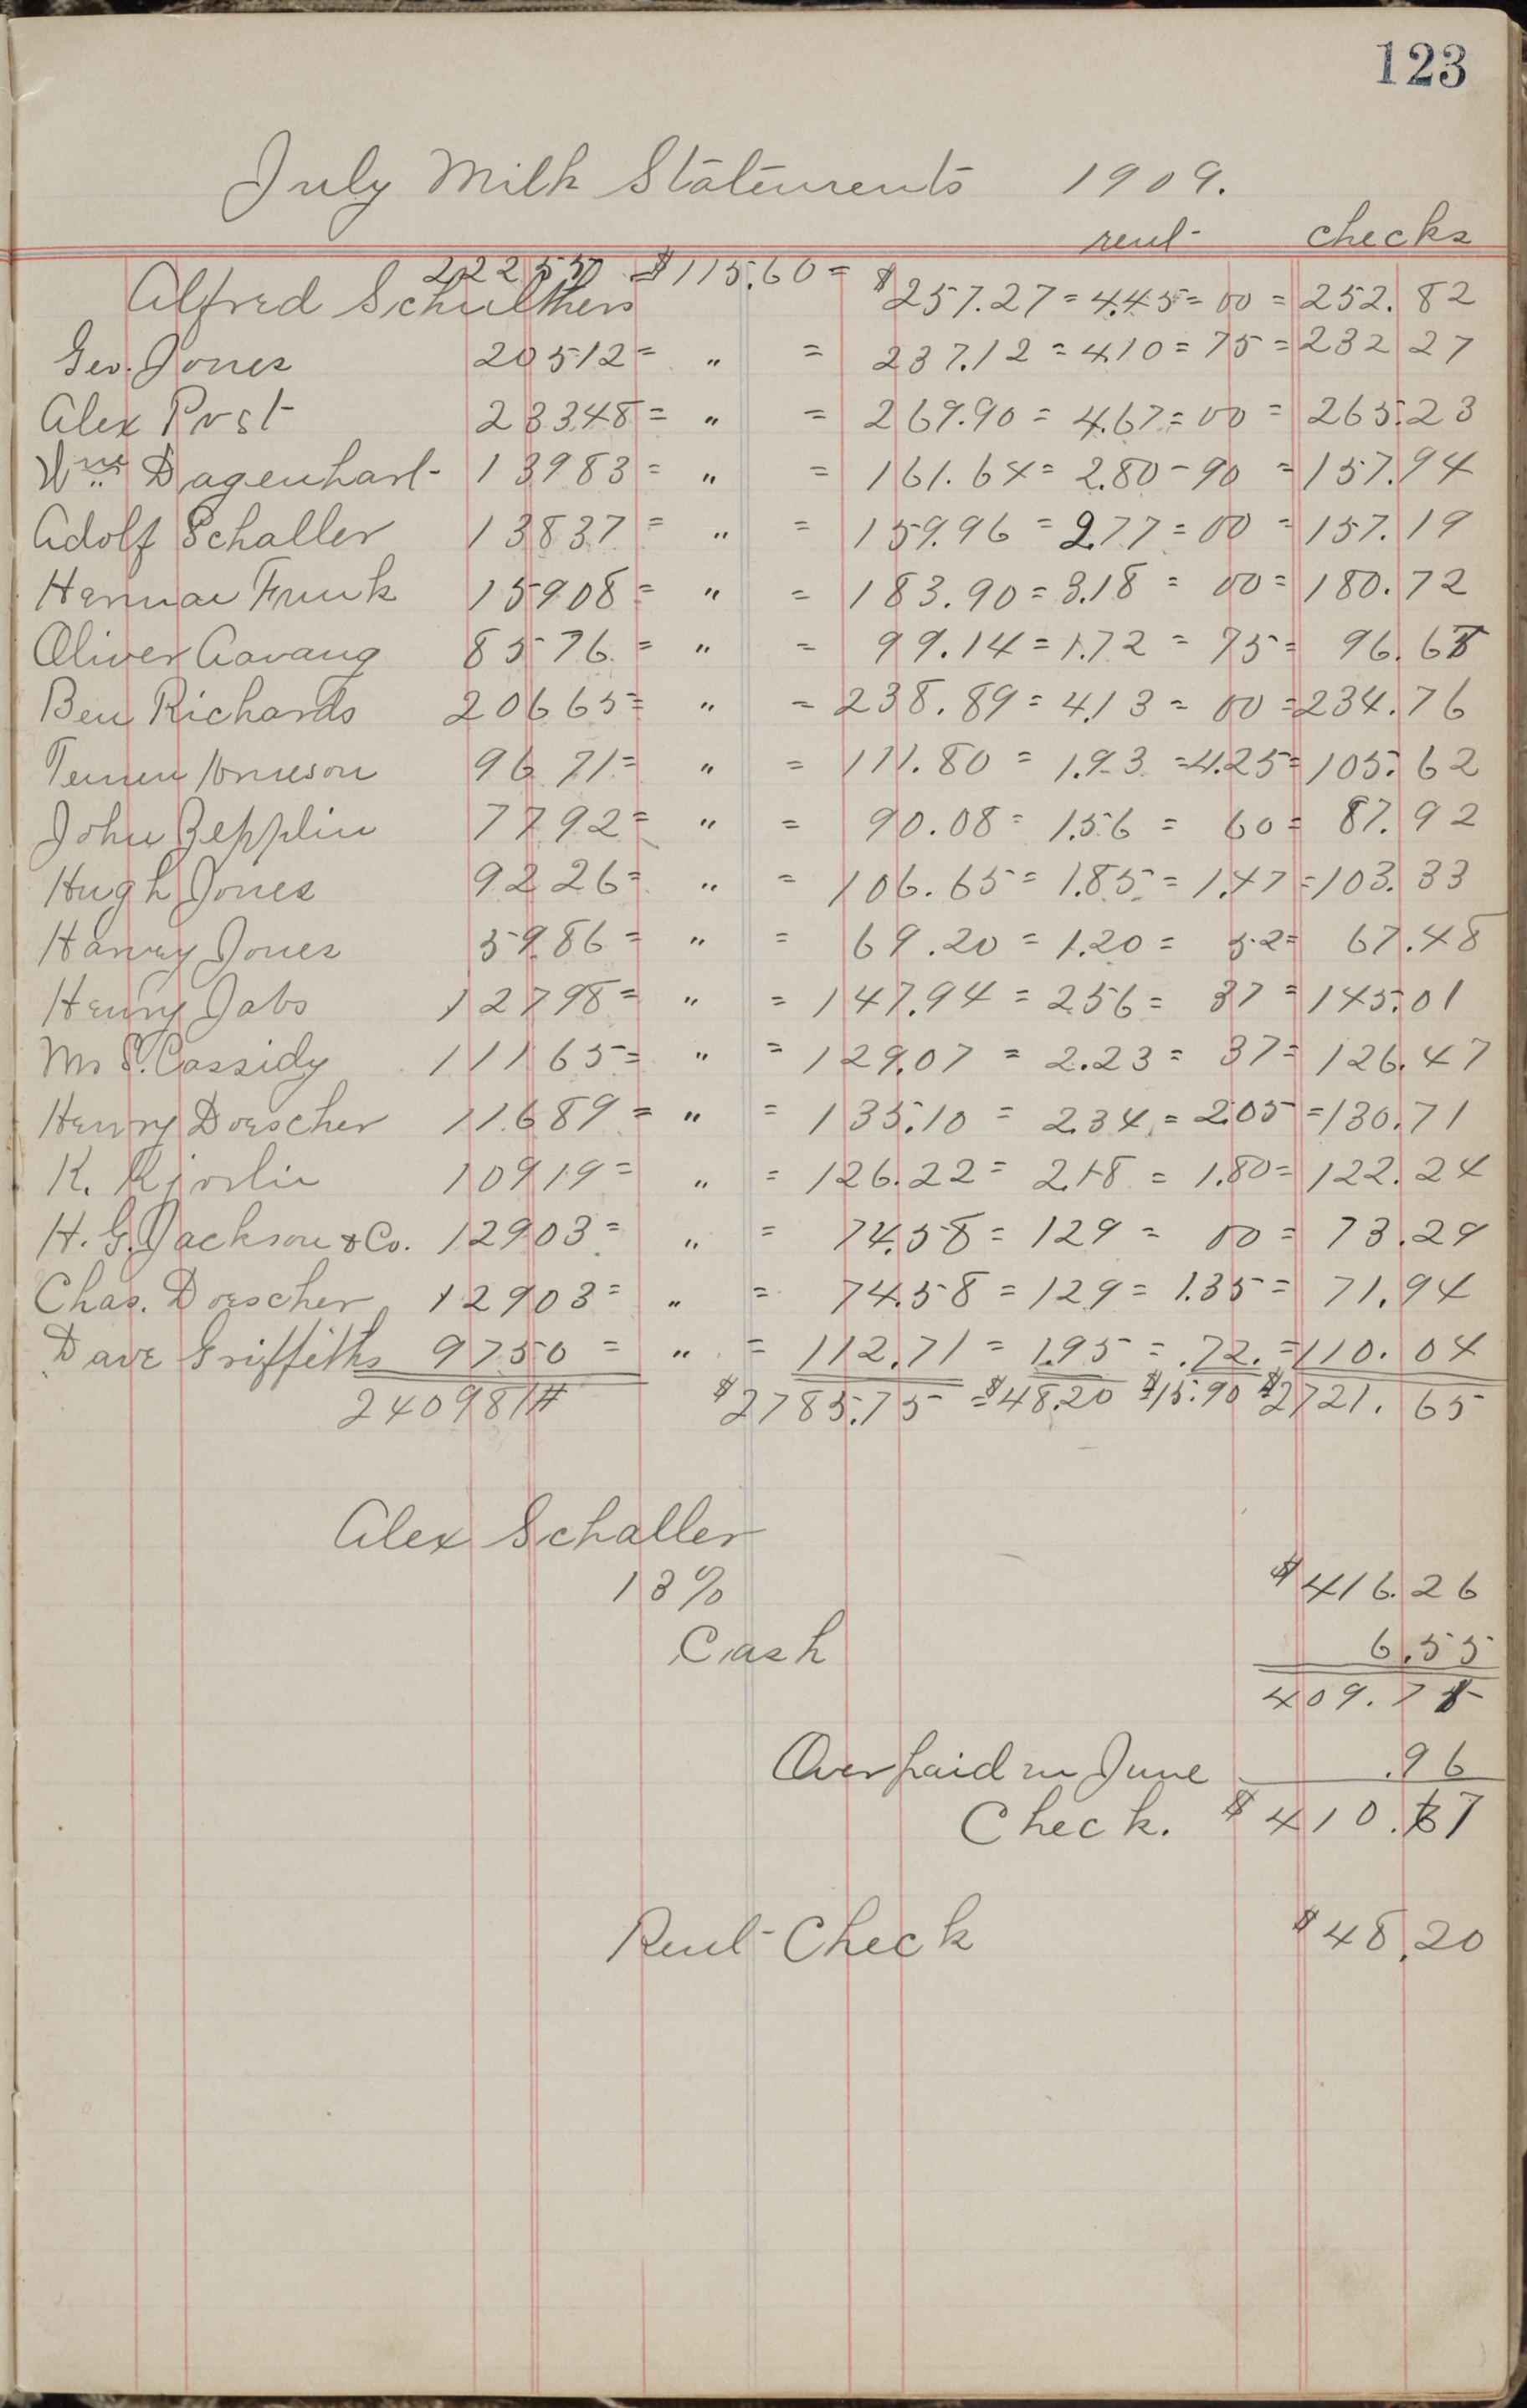 123
July Milk Statements 1909.
rent checks
Alfred Schulthers 22255 = $115.60 = $257.27 = 4.45 = 00 = 252.82
Geo. Jones 20512 = " = 237.12 = 4.10 = 75 = 232 27
Alex Post 23348 = " = 269.90 = 4.67 = 00 = 265.23
Wm Dagenhart 13983 = " = 161.64 = 2.80 - 90 = 157.94
Adolf Schaller 13837 = " = 159.96 = 2.77 = 00 = 157.19
Herman Frunk 15908 = " = 183.90 = 3.18 = 00 = 180.72
Oliver Aavang 8576 = " = 99.14 = 1.72 = 75 = 96.67
Ben Richards 20665 = " = 238.89 = 4.13 = 00 = 234.76
9671 = " = 111.80 = 1.93 = 4.25 = 105.62
John Zepplin 7792 = " = 90.08 = 1.56 = 60 = 87.92
Hugh Jones 9226 = " = 106.65 = 1.85 = 1.47 = 103.33
Harvey Jones 5986 = " = 69.20 = 1.20 = 52 = 67.48
Henry Jabs 12798 = " = 147.94 = 256 = 37 = 145.01
Mrs S. Cassidy 11165 = " = 129.07 = 2.23 = 37 = 126.47
Henry Doescher 11689 = " = 135.10 = 2.34 = 2.05 = 130.71
K. Kjorlie 10919 = " = 126.22 = 2.18 = 1.80 = 122.24
H. G. Jackson & Co. 12903 = " = 74.58 = 129 = 00 = 73.29
Chas. Doescher 12903 = " = 74.58 = 129 = 1.35 = 71.94
Dave Griffiths 9750 = " = 112.71 = 1.95 = .72. = 110.04
240981# $2785.75 = $48.20 $15.90 $2721.65
Alex Schaller
18% $416.26
Cash 6.55
409.71
Over paid in June .96
Check. $410.67
Rent Check $48.20